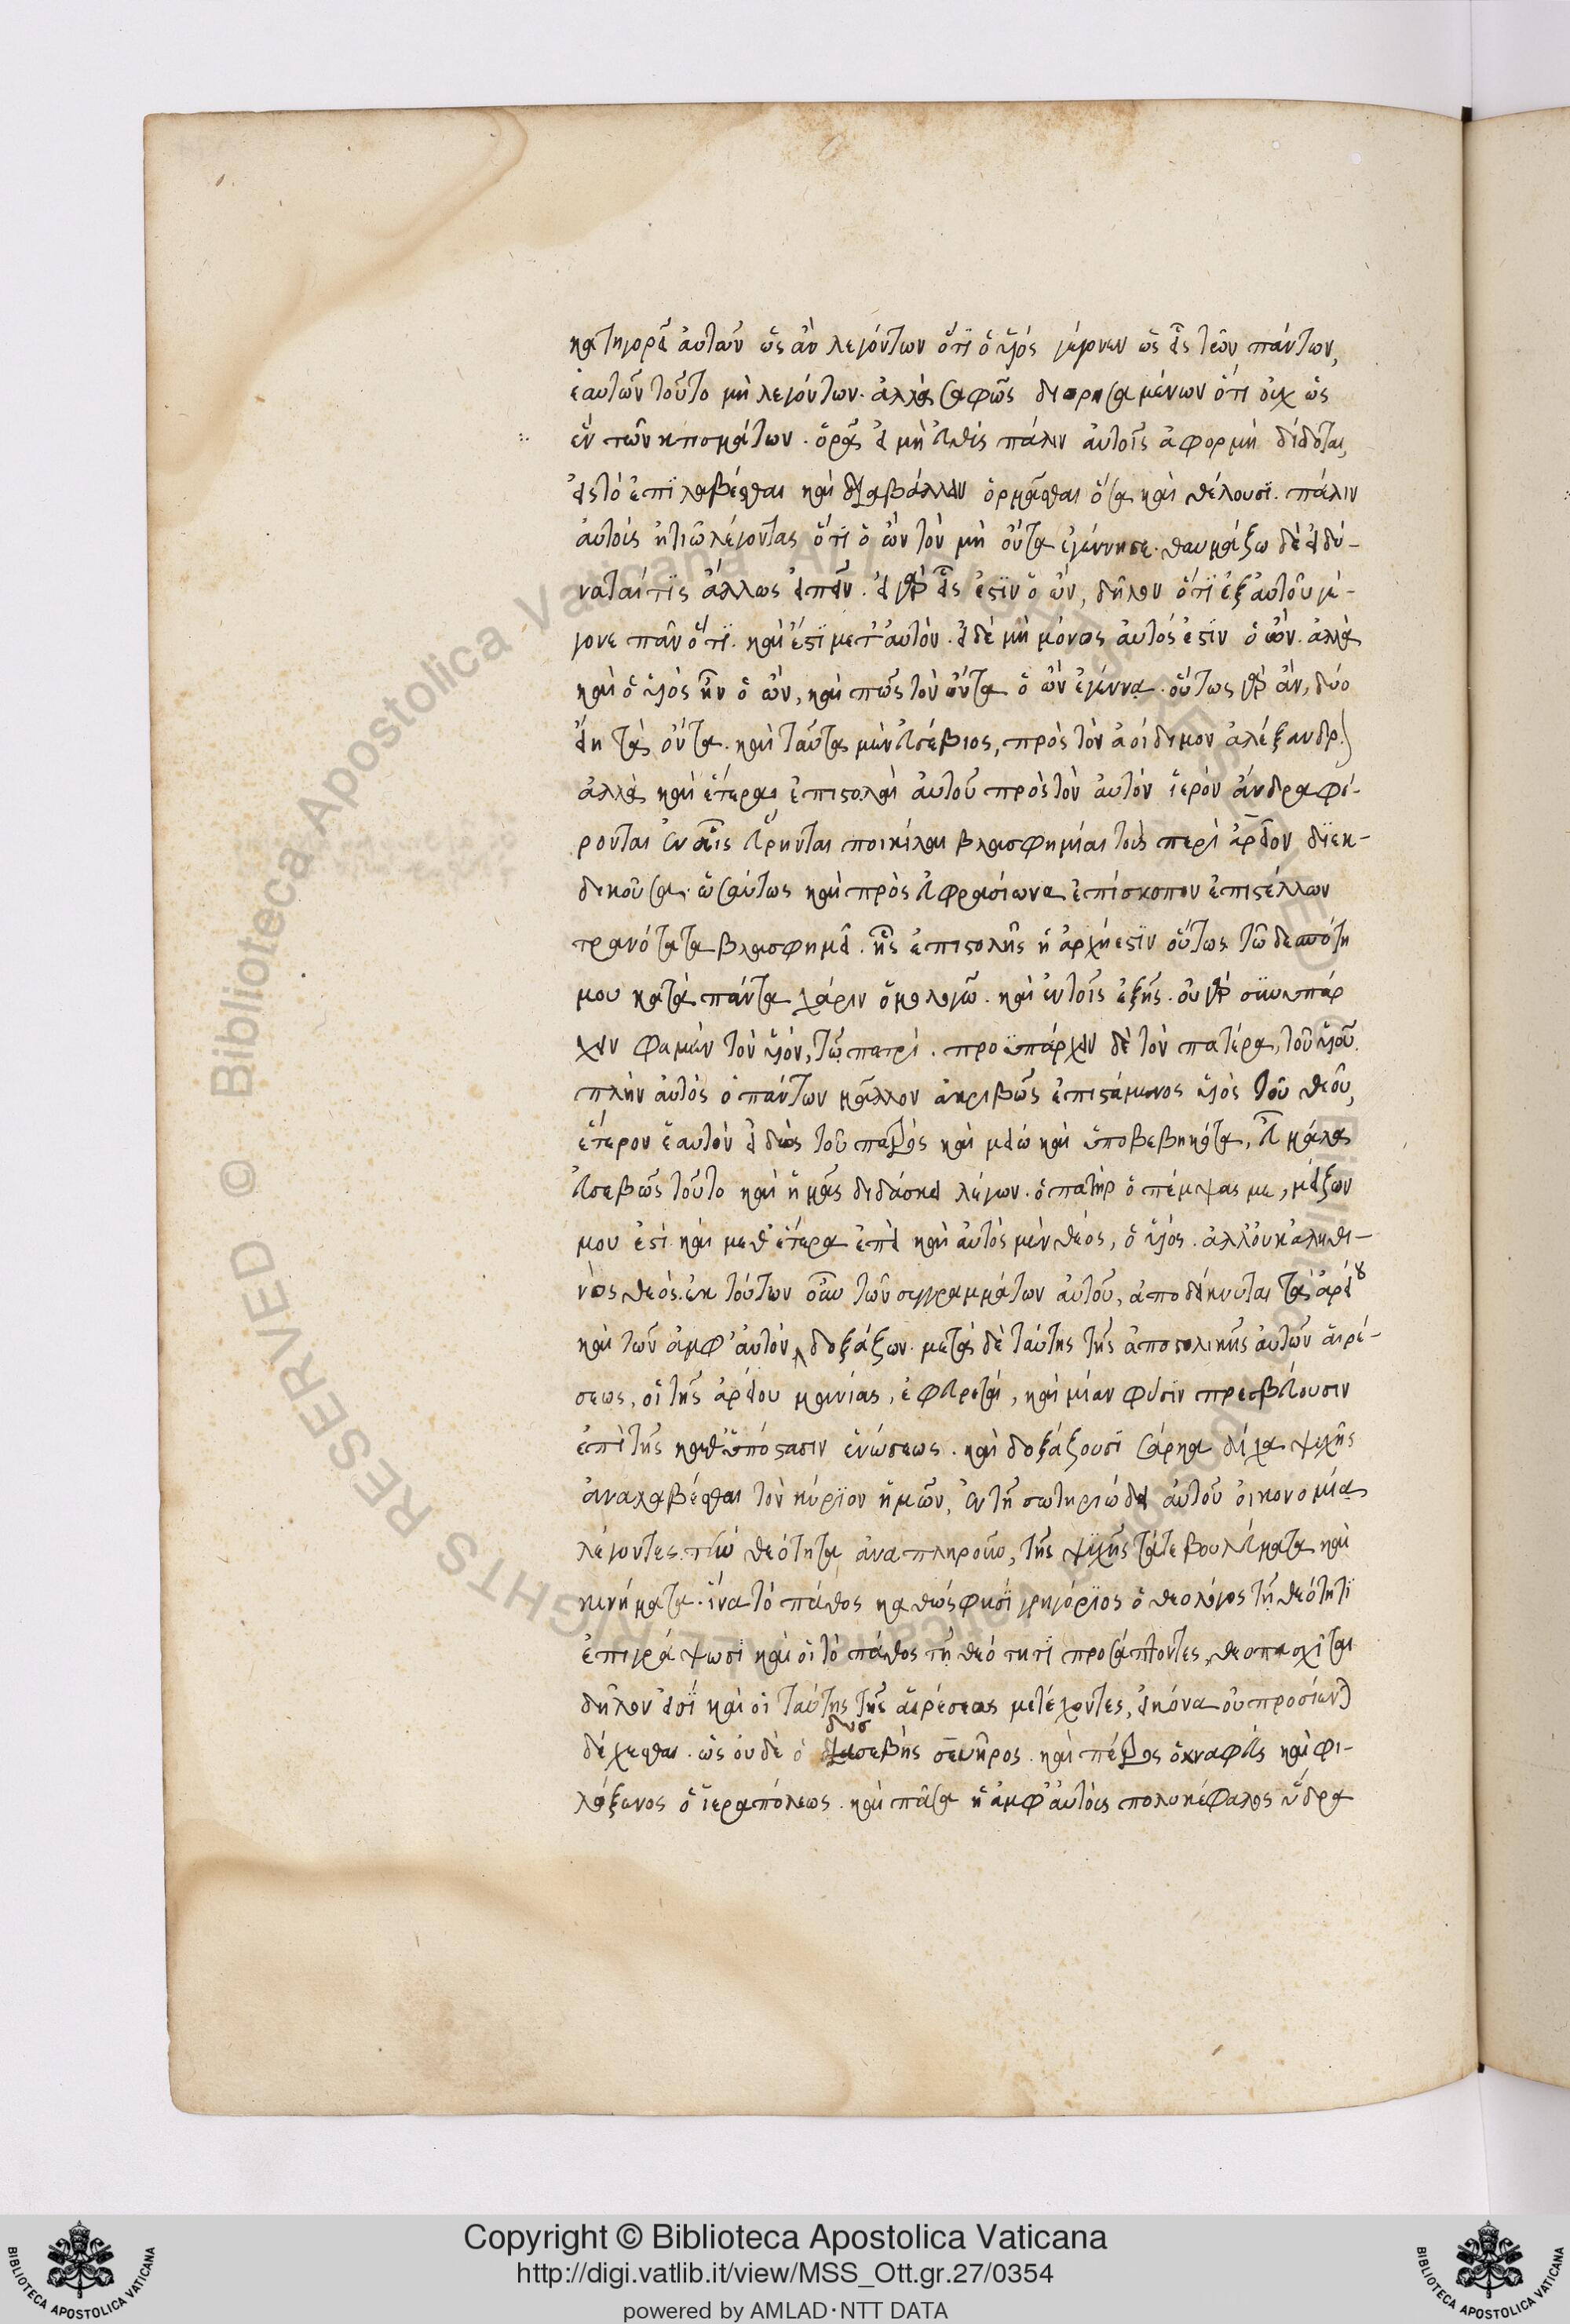 κατηγορεῖ αὐτῶν ὡς ἂν λεγόντων ὅτι ὁ υἱός γέγονεν ὡς εἷς τῶν πάντων,
ἑαυτῶν τοῦτο μὴ λεγόντων. ἀλλὰ σαφῶς διορισαμένων ὅτι οὐχ ὡς
ἓν τῶν κτισμάτων. ὅρα εἰ μὴ εὐθύς πάλιν αὐτοῖς ἀφορμὴ δίδοται,
εἰς τὸ ἐπιλαβέσθαι καὶ διαβάλλειν ὁρμᾶσθαι ὅσα καὶ θέλουσι. πάλιν
αὐτοὺς ᾐτιῶ λέγοντας ὅτι ὁ ὢν τὸν μὴ ὄντα ἐγέννησε. θαυμάζω δὲ εἰ δύ-
ναταί τις ἄλλως εἰπεῖν. εἰ γὰρ εἷς ἐστιν ὁ ὤν, δῆλον ὅτι ἐξ αὐτοῦ γέ-
γονε πᾶν ὅτι. καὶ ἔστι μετ' αὐτὸν. εἰ δὲ μὴ μόνος αὐτός ἐστιν ὁ ὤν. ἀλλὰ
καὶ ὁ υἱὸς ἦν ὁ ὤν, καὶ πῶς τὸν ὄντα ὁ ὢν ἐγέννα. οὕτως γὰρ ἂν, δύο
εἴη τὰ ὄντα. καὶ ταῦτα μὲν εὐσέβιος, πρὸς τὸν ἀοίδιμον ἀλέξανδρ)
ἀλλὰ καὶ ἕτεραι ἐπιστολαὶ αὐτοῦ πρὸς τὸν αὐτόν ἱερὸν ἄνδρα φέ-
ρονται ἐν αἷς εὕρηνται ποικίλαι βλασφημίαι τοὺς περὶ ἄρειον διεκ-
δικοῦσαι. ὡσαύτως καὶ πρὸς εὐφρασίωνα ἐπίσκοπον ἐπιστέλλων
τρανότατα βλασφημεῖ. ἧς ἐπιστολῆς ἡ ἀρχή ἐστιν οὕτως. τῶ δεσπότη
μου κατὰ πάντα χάριν ὁμολογῶ. καὶ ἐν τοῖς ἑξῆς. οὐ γὰρ συνυπάρ
χειν φαμὲν τὸν υἱόν, τῶ πατρὶ. προϋπάρχειν δὲ τὸν πατέρα, τοῦ υἱοῦ.
πλὴν αὐτὸς ὁ πάντων μᾶλλον ἀκριβῶς ἐπιστάμενος υἱὸς τοῦ θεοῦ,
ἕτερον ἑαυτὸν εἰδὼς τοῦ πατρὸς καὶ μείω καὶ ὑποβεβηκότα, εὖ μάλα
εὐσεβῶς τοῦτο καὶ ἡμᾶς διδάσκει λέγων. ὁ πατὴρ ὁ πέμψας με, μείζων
μου ἐστὶ καὶ μεθ' ἕτερα ἐπεὶ καὶ αὐτὸς μὲν θεός, ὁ υἱός. ἀλλ' οὐκ ἀληθι-
νὸς θεός. ἐκ τούτων οὖν τῶν συγγραμμάτων αὐτοῦ, ἀποδείκνυται τὰ ἀρείου
καὶ τῶν ἀμφ' αὐτὸν, δοξάζων. μετὰ δὲ ταύτης τῆς ἀποστολικῆς αὐτῶν αἱρέ-
σεως, οἱ τῆς ἀρείου μανίας, ἐφευρεταί, καὶ μίαν φύσιν πρεσβεύουσιν
ἐπὶ τῆς καθ' ὑπόστασιν ἑνώσεως. καὶ δοξάζουσι σάρκα δίχα ψυχῆς
ἀναλαβέσθαι τὸν κύριον ἡμῶν, ἐν τῆ σωτηριώδει αὐτοῦ οἰκονομία
λέγοντες. τὴν θεότητα ἀναπληροῦν, τῆς ψυχῆς τά τε βουλεύματα καὶ
κινήματα. ἵνα τὸ πάθος καθώς φησὶ γρηγόριος ὁ θεολόγος τῆ θεότητι
ἐπιγράψωσι καὶ οἱ τὸ πάθος τῆ θεότητι προσάπτοντες, θεοπασχῖται
δῆλον εἰσὶ καὶ οἱ ταύτης τῆς αἱρέσεως μετέχοντες, εἰκόνα οὐ προσίεν)
δέχεσθαι. ὡς οὐδὲ ὁ δυσσεβὴς σευῆρος. καὶ πέτρος ὁ κναφεὺς καὶ φι-
λόξενος ὁ ἱεραπόλεως. καὶ πᾶσα ἡ ἀμφ' αὐτοὺς πολυκέφαλος ὕδρα
Copyright © Biblioteca Apostolica Vaticana
http://digi.vatlib.it/view/MSS_Ott.gr.27/0354
powered by AMLAD·NTT DATA